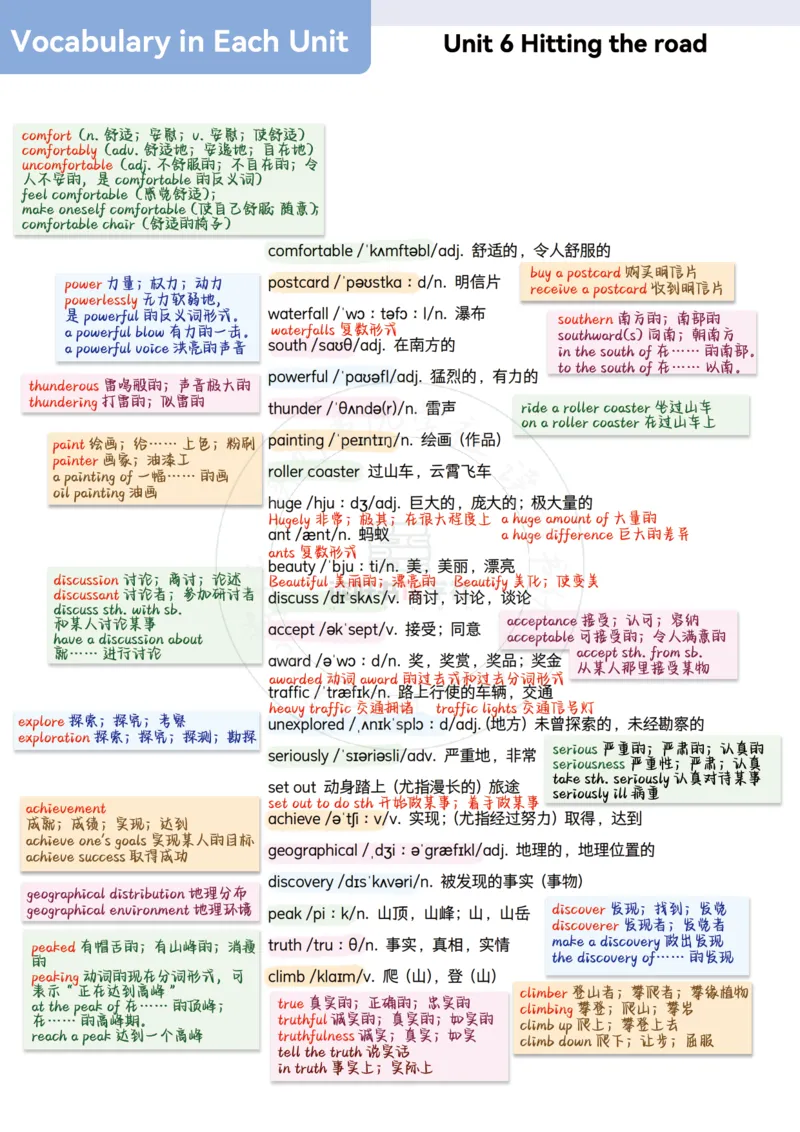 Vocabulary in Each Unit
Unit 6 Hitting the road
comfort (n. 舒适；安慰；v. 安慰；使舒适)
comfortably (adv. 舒适地；安逸地；自在地)
uncomfortable (adj. 不舒服的；不自在的；令
人不安的，是 comfortable 的反义词)
feel comfortable (感觉舒适);
make oneself comfortable (使自己舒服; 随意);
comfortable chair (舒适的椅子)
comfortable /ˈkʌmftəbl/adj. 舒适的，令人舒服的
postcard /ˈpəʊstkɑːd/n. 明信片
buy a postcard 购买明信片
receive a postcard 收到明信片
power 力量；权力；动力
powerlessly 无力软弱地，
是 powerful 的反义词形式。
a powerful blow 有力的一击。
a powerful voice 洪亮的声音
waterfall /ˈwɔːtəfɔːl/n. 瀑布
waterfalls 复数形式
south /saʊθ/adj. 在南方的
southern 南方的；南部的
southward(s) 向南；朝南方
in the south of 在…… 的南部。
to the south of 在…… 以南。
powerful /ˈpaʊəfl/adj. 猛烈的，有力的
thunderous 雷鸣般的；声音极大的
thundering 打雷的；似雷的
thunder /ˈθʌndə(r)/n. 雷声
ride a roller coaster 坐过山车
on a roller coaster 在过山车上
paint 绘画；给…… 上色；粉刷
painter 画家；油漆工
a painting of 一幅…… 的画
oil painting 油画
painting /ˈpeɪntɪŋ/n. 绘画（作品）
roller coaster 过山车，云霄飞车
huge /hjuːdʒ/adj. 巨大的，庞大的；极大量的
Hugely 非常；极其；在很大程度上 a huge amount of 大量的
ant /ænt/n. 蚂蚁
a huge difference 巨大的差异
ants 复数形式
beauty /ˈbjuːti/n. 美，美丽，漂亮
Beautiful 美丽的；漂亮的 Beautify 美化；使变美
discussion 讨论；商讨；论述
discussant 讨论者；参加研讨者
discuss sth. with sb.
和某人讨论某事
have a discussion about
就…… 进行讨论
discuss /dɪˈskʌs/v. 商讨，讨论，谈论
accept /əkˈsept/v. 接受；同意
acceptance 接受；认可；容纳
acceptable 可接受的；令人满意的
accept sth. from sb.
从某人那里接受某物
award /əˈwɔːd/n. 奖，奖赏，奖品；奖金
awarded 动词 award 的过去式和过去分词形式
traffic /ˈtræfɪk/n. 路上行使的车辆，交通
heavy traffic 交通拥堵 traffic lights 交通信号灯
explore 探索；探究；考察
exploration 探索；探究；探测；勘探
unexplored /ˌʌnɪkˈsplɔːd/adj.（地方）未曾探索的，未经勘察的
seriously /ˈsɪəriəsli/adv. 严重地，非常
serious 严重的；严肃的；认真的
seriousness 严重性；严肃；认真
take sth. seriously 认真对待某事
seriously ill 病重
set out 动身踏上（尤指漫长的）旅途
set out to do sth 开始做某事；着手做某事
achievement
成就；成绩；实现；达到
achieve one's goals 实现某人的目标
achieve success 取得成功
achieve /əˈtʃiːv/v. 实现；（尤指经过努力）取得，达到
geographical /ˌdʒiːəˈɡræfɪkl/adj. 地理的，地理位置的
geographical distribution 地理分布
geographical environment 地理环境
discovery /dɪsˈkʌvəri/n. 被发现的事实（事物）
peak /piːk/n. 山顶，山峰；山，山岳
discover 发现；找到；发觉
discoverer 发现者；发觉者
make a discovery 做出发现
the discovery of…… 的发现
peaked 有帽舌的；有山峰的；消瘦
的
peaking 动词的现在分词形式，可
表示“ 正在达到高峰 ”
at the peak of 在…… 的顶峰；
在…… 的高峰期。
reach a peak 达到一个高峰
truth /truːθ/n. 事实，真相，实情
climb /klaɪm/v. 爬（山），登（山）
true 真实的；正确的；忠实的
truthful 诚实的；真实的；如实的
truthfulness 诚实；真实；如实
tell the truth 说实话
in truth 事实上；实际上
climber 登山者；攀爬者；攀缘植物
climbing 攀登；爬山；攀岩
climb up 爬上；攀登上去
climb down 爬下；让步；屈服